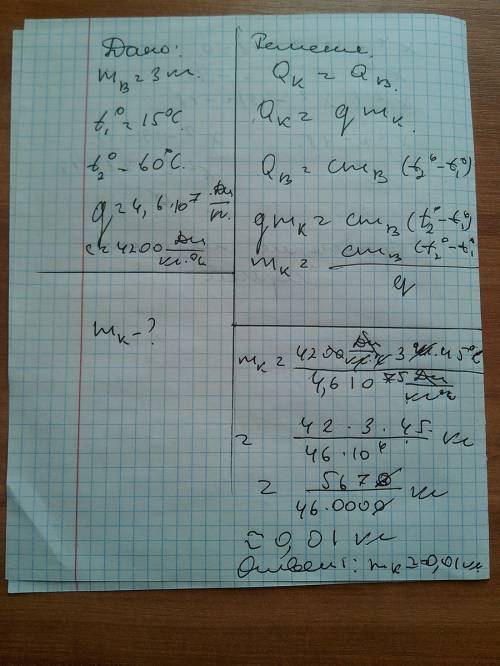 Дано:
m_в = 3 кг.
t₁° = 15°C.
t₂° - 60°C.
q = 4,6·10⁷ Дж/кг.
c = 4200 Дж/кг·°C
m_к - ?
Решение
Q_к = Q_в.
Q_к = q m_к.
Q_в = cm_в (t₂° - t₁°)
qm_к = cm_в (t₂° - t₁°)
m_к = cm_в (t₂° - t₁°) / q
m_к = 4200 · 3 · 45° / 4,6 10⁷
= 42 · 3 · 45 / 46 · 10⁶ кг
= 5670 / 46.0000 кг
≈ 0,01 кг
Ответ: m_к ≈ 0,01 кг.